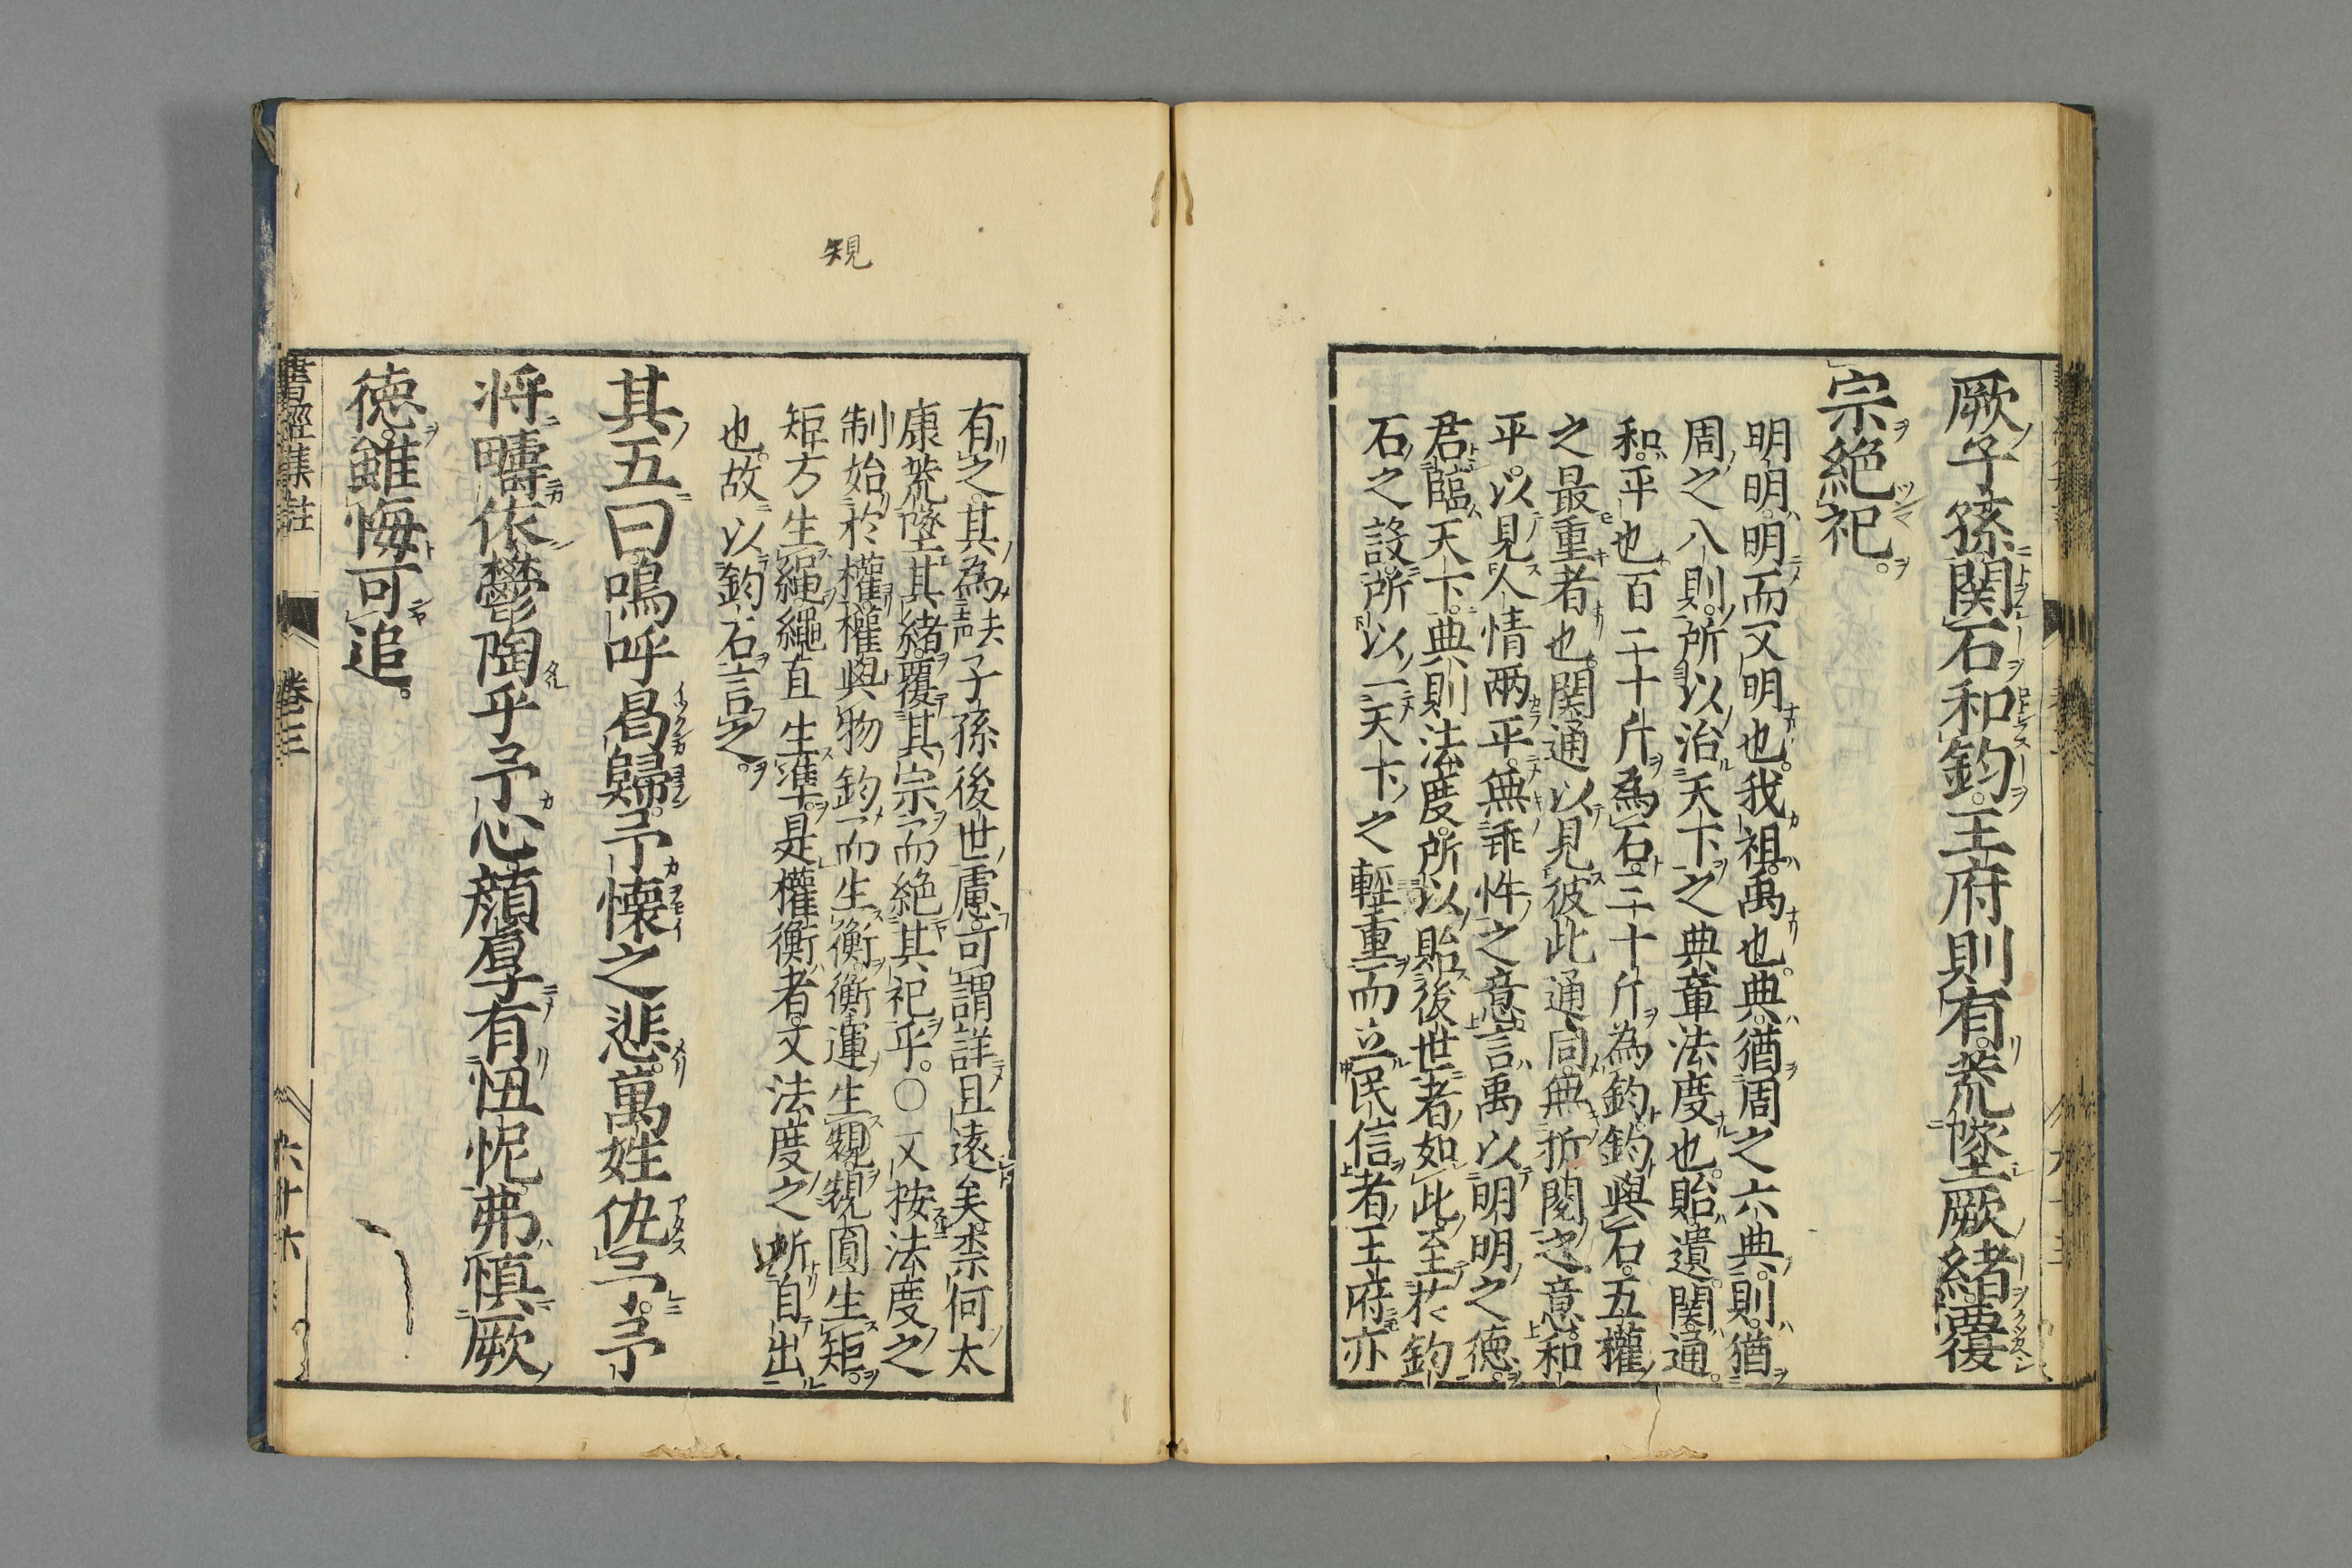 厥子孫関石和鈞。王府則有。荒墜厥緒。覆
宗絶祀。
明明。明而又明也。我祖。禹也。典。猶周之六典。則。猶
周之八則。所以治天下之典章法度也。貽。遺。関。通。
和。平也。百二十斤為石。三十斤為鈞。鈞與石。五權
之最重者也。関通以見彼此通同。無折閲之意。和
平。以見人情兩平。無乖忤之意。言禹以明明之徳。
君臨天下。典則法度。所以貽後世者如此。至於鈞
石之設。所以一天下之輕重。而立民信者。王府亦
有之。其為子孫後世慮。可謂詳且遠矣。柰何太
康荒墜其緒。覆其宗。而絶其祀乎。〇又按法度之
制始於權。權與物鈞而生衡。衡運生規。規圓生矩。
矩方生繩。繩直生準。是權衡者。又法度之所自出
也。故以鈞石言之。
其五曰。嗚呼曷歸。予懐之悲。萬姓仇予。予
将疇依。鬱陶乎予心。顔厚有忸怩。弗慎厥
徳。雖悔可追。
書經集註
巻三
六
十六
規